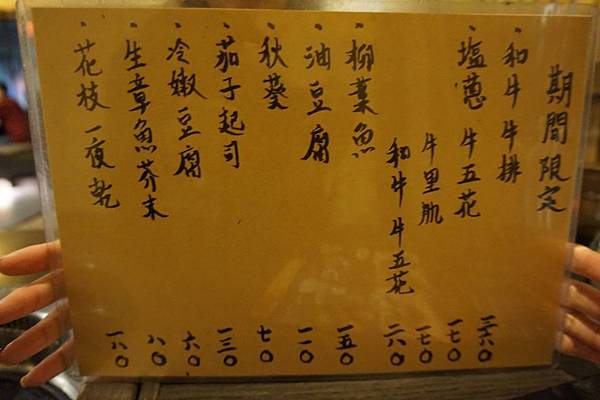 期間限定
・和牛牛排 三六〇
・塩蔥牛五花 一七〇
牛里肌 一七〇
和牛牛五花 二六〇
・柳葉魚 一五〇
・油豆腐 一一〇
・秋葵 七〇
・茄子起司 一三〇
・冷嫩豆腐 六〇
・生章魚芥末 八〇
・花枝一夜乾 一八〇